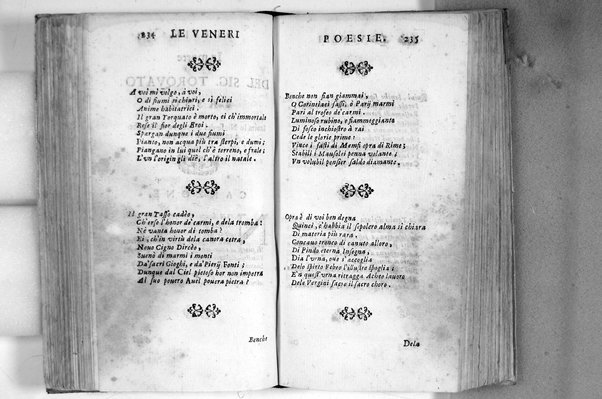 234 LE VENERI
A voi mi volgo, à voi,
O di fiumi sì chiari, e sì felici
Anime habitatrici.
Il gran Torquato è morto, ei ch'immortale
Rese il fior degli Eroi.
Spargan dunque i due fiumi
Pianto, non acqua più tra sterpi, e dumi;
Piangano in lui quel ch'è terreno, e frale;
L'vn l'origin gli diè, l'altro il natale.
Il gran Tasso cadèo,
Ch'erse l'honor de' carmi, e dela tromba:
Né vanta honor di tomba?
Ei, ch'in virtù dela canora cetra,
Nouo Cigno Dircèo,
Suenò di marmi i monti
Da' sacri Gioghi, e da' Pierij Fonti;
Dunque dal Ciel pietoso hor non impetra
Al suo pouero Auel pouera pietra?
Benche
POESIE. 235
Benche non sian giammai,
O Corinthiaci sassi, ò Parij marmi
Pari al trofeo de' carmi.
Luminoso rubino, e fiammeggiante
Di fosco inchiostro à rai
Cede le glorie prime:
Vince i fasti di Memfi opra di Rime;
Stabili i Mausolei penna volante;
Vn volubil pensier saldo diamante.
Opra è di voi ben degna
Quinci, c'habbia il sepolcro alma sì chiara
Di materia più rara.
Concauo tronco di canuto alloro,
Di Pindo eterna Insegna,
Dia l'vrna, oue s'accoglia
Delo spirto Febeo l'illustre spoglia;
E'n quest'vrna ritragga Acheo lauoro
Dele Vergini sacre il sacro choro.
Dela